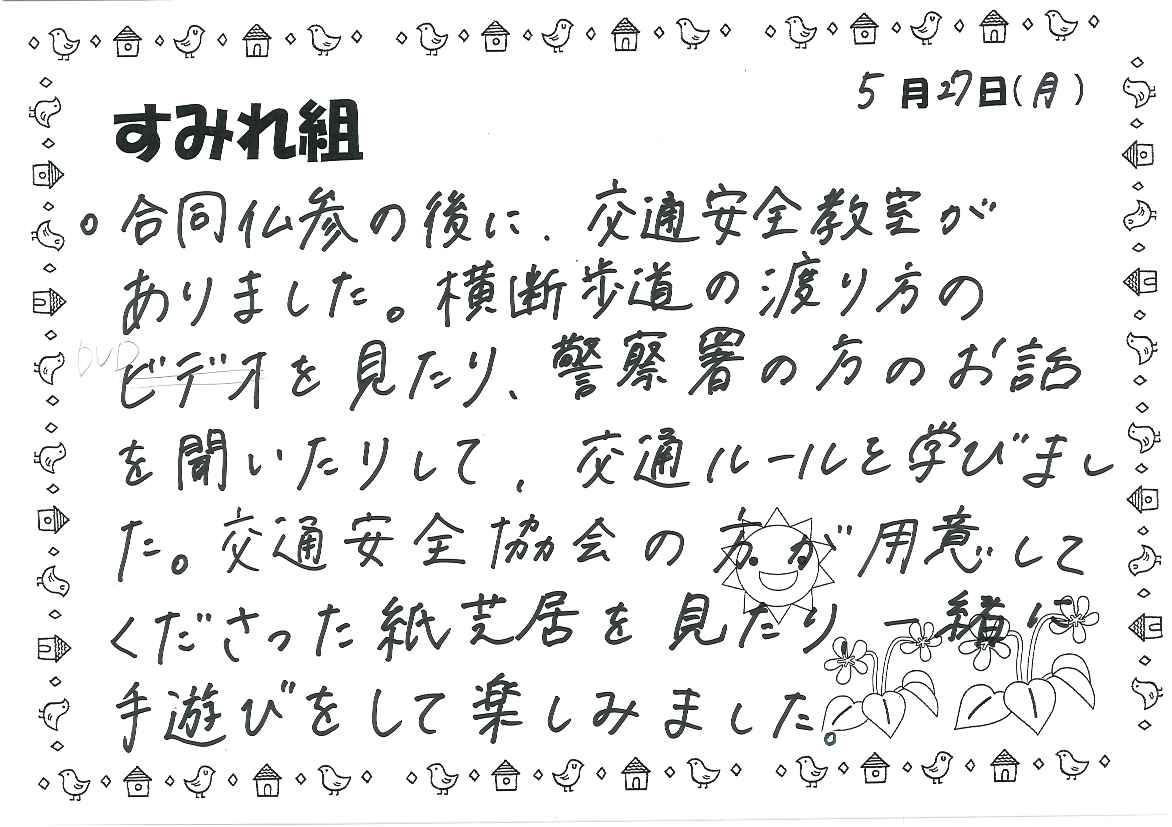 5月27日(月)
すみれ組
○合同仏参の後に、交通安全教室が
ありました。横断歩道の渡り方の
DVD
ビデオを見たり、警察署の方のお話
を聞いたりして、交通ルールを学びまし
た。交通安全協会の方が用意して
くださった紙芝居を見たり、一緒に
手遊びをして楽しみました。